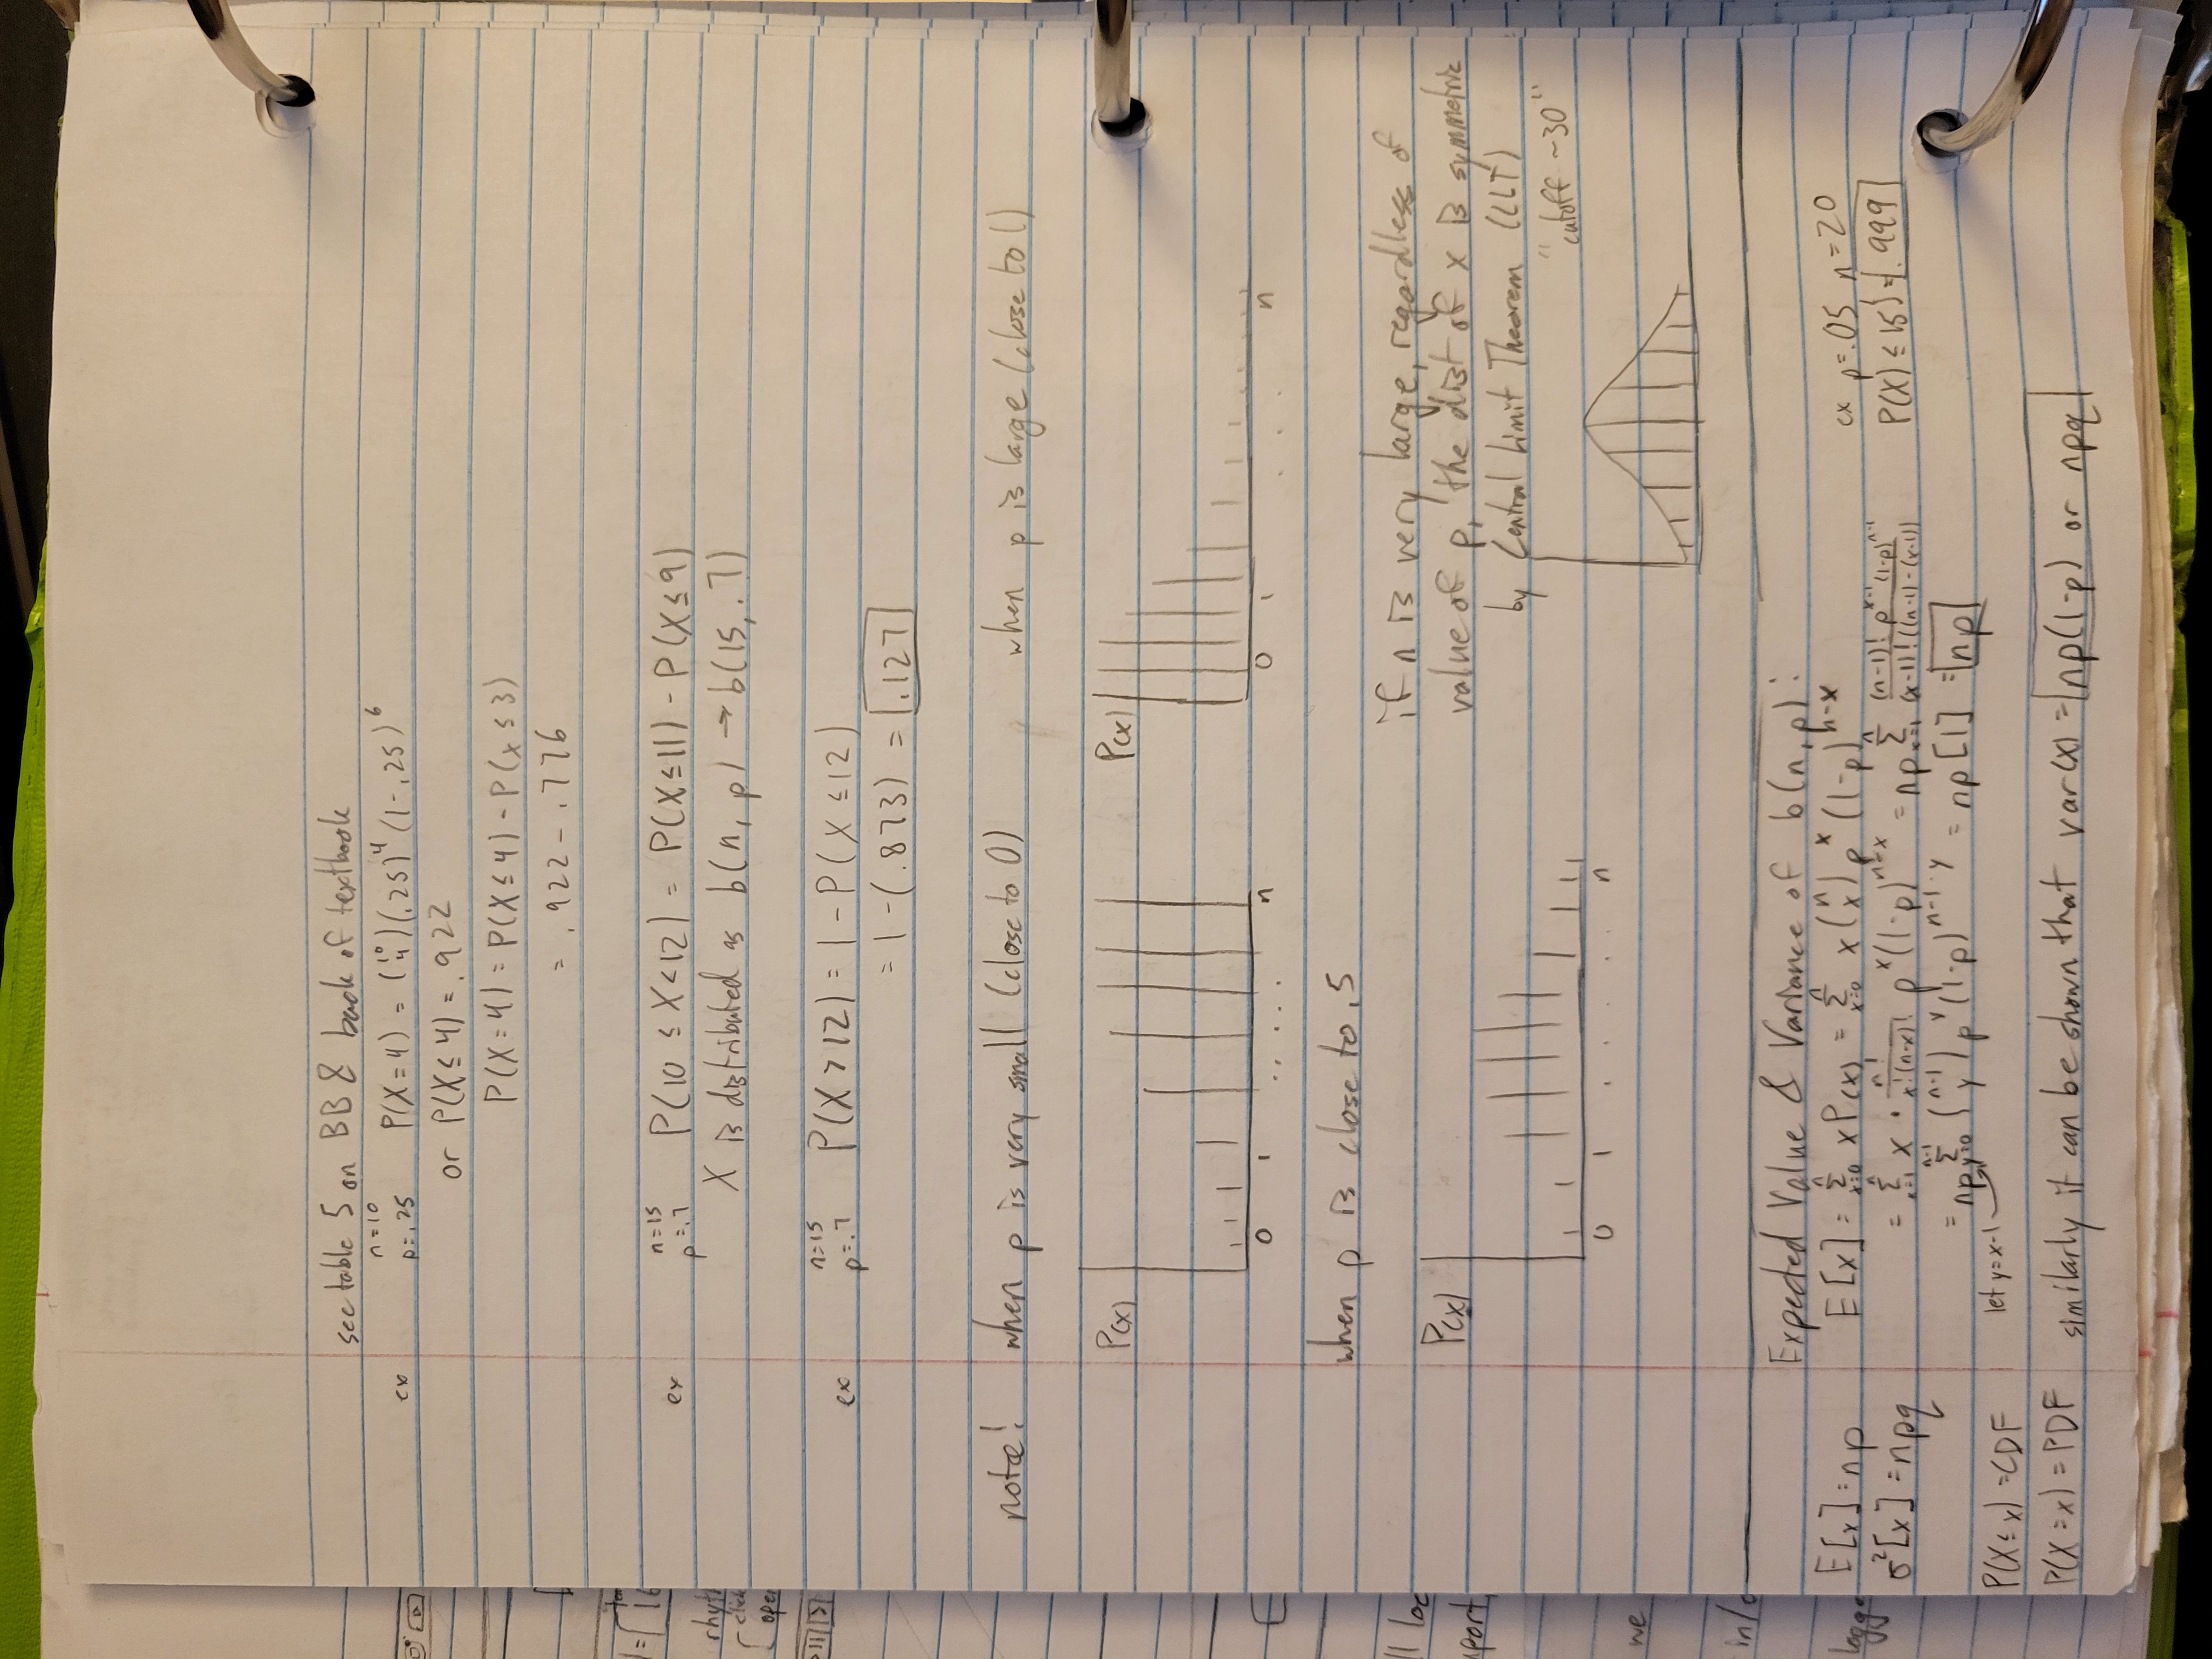 see table 5 on BB & back of textbook
ex n=10 p=.25 P(X=4) = (10 4)(.25)^4 (1-.25)^6
or P(X≤4) = .922
P(X=4) = P(X≤4) - P(x≤3)
= .922 - .776
ex n=15 p=.7 P(10 ≤ X<12) = P(X≤11) - P(X≤9)
X is distributed as b(n, p) → b(15, .7)
ex n=15 p=.7 P(X>12) = 1 - P(X ≤12)
= 1 - (.873) = .127
note! when p is very small (close to 0) when p is large (close to 1)
P(x) P(x)
0 1 ..... n 0 1 ... n
when p is close to .5
if n is very large, regardless of
value of p, the dist of x is symmetric
by Central Limit Theorem (CLT)
"cutoff ~30"
P(x)
0 1 ..... n
Expected Value & Variance of b(n, p):
E[x] = np E[x] = Σ_{x=0}^{n} xP(x) = Σ_{x=0}^{n} x(n x) p^x (1-p)^{n-x} ex p=.05 n=20
σ²[x] = npq = Σ_{x=1}^{n} x · n!/x!(n-x)! p^x (1-p)^{n-x} = np Σ_{x=1}^{n} (n-1)! p^{x-1} (1-p)^{n-1}/(x-1)!((n-1)-(x-1)) P(X) ≤ 15) = .999
= np Σ_{y=0}^{n-1} (n-1 y) p^y (1-p)^{n-1-y} = np[1] = np
let y=x-1
P(X≤x) = CDF
P(X=x) = PDF similarly it can be shown that var(x) = np(1-p) or npq
rhyt
click
open
we
in/o